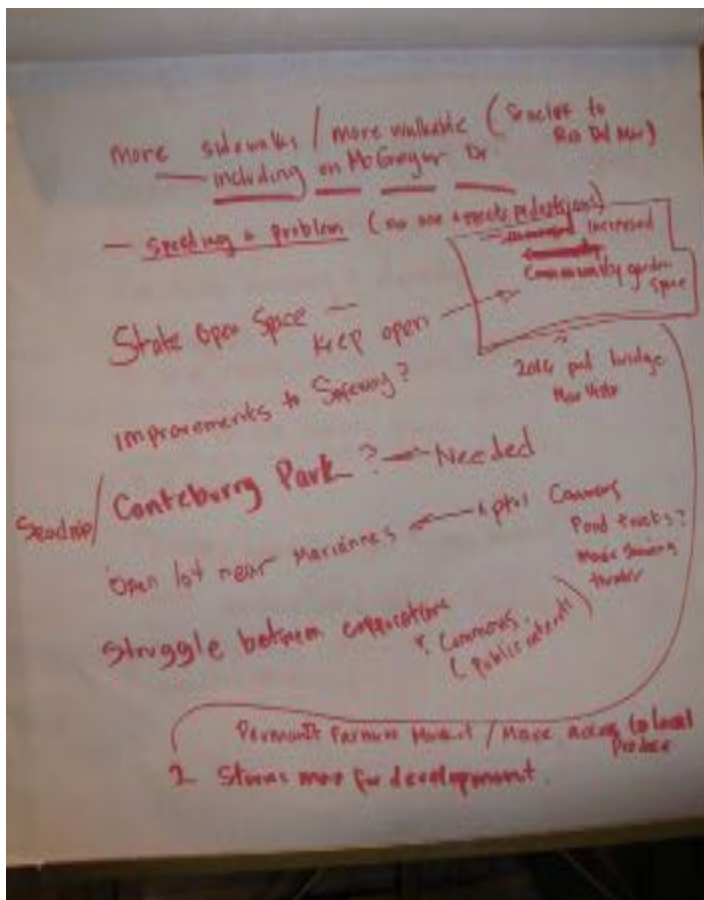 more sidewalks / more walkable (Seacliff to Rio Del Mar)
— including on McGregor Dr.
— Speeding a problem (no one expects pedestrians)
increased
Community garden space
State Open Space — Keep open
2016 ped bridge
Mar Vista
improvements to Safeway?
Seacliff / Canterburry Park? — Needed
Open lot near Mariannes — Aptos Commons
Food trucks?
movie showing
theater
Struggle between corporations
v. Commons.
(public interest)
Permanent Farmers Market / More access to local Produce
2 Stories max for development.